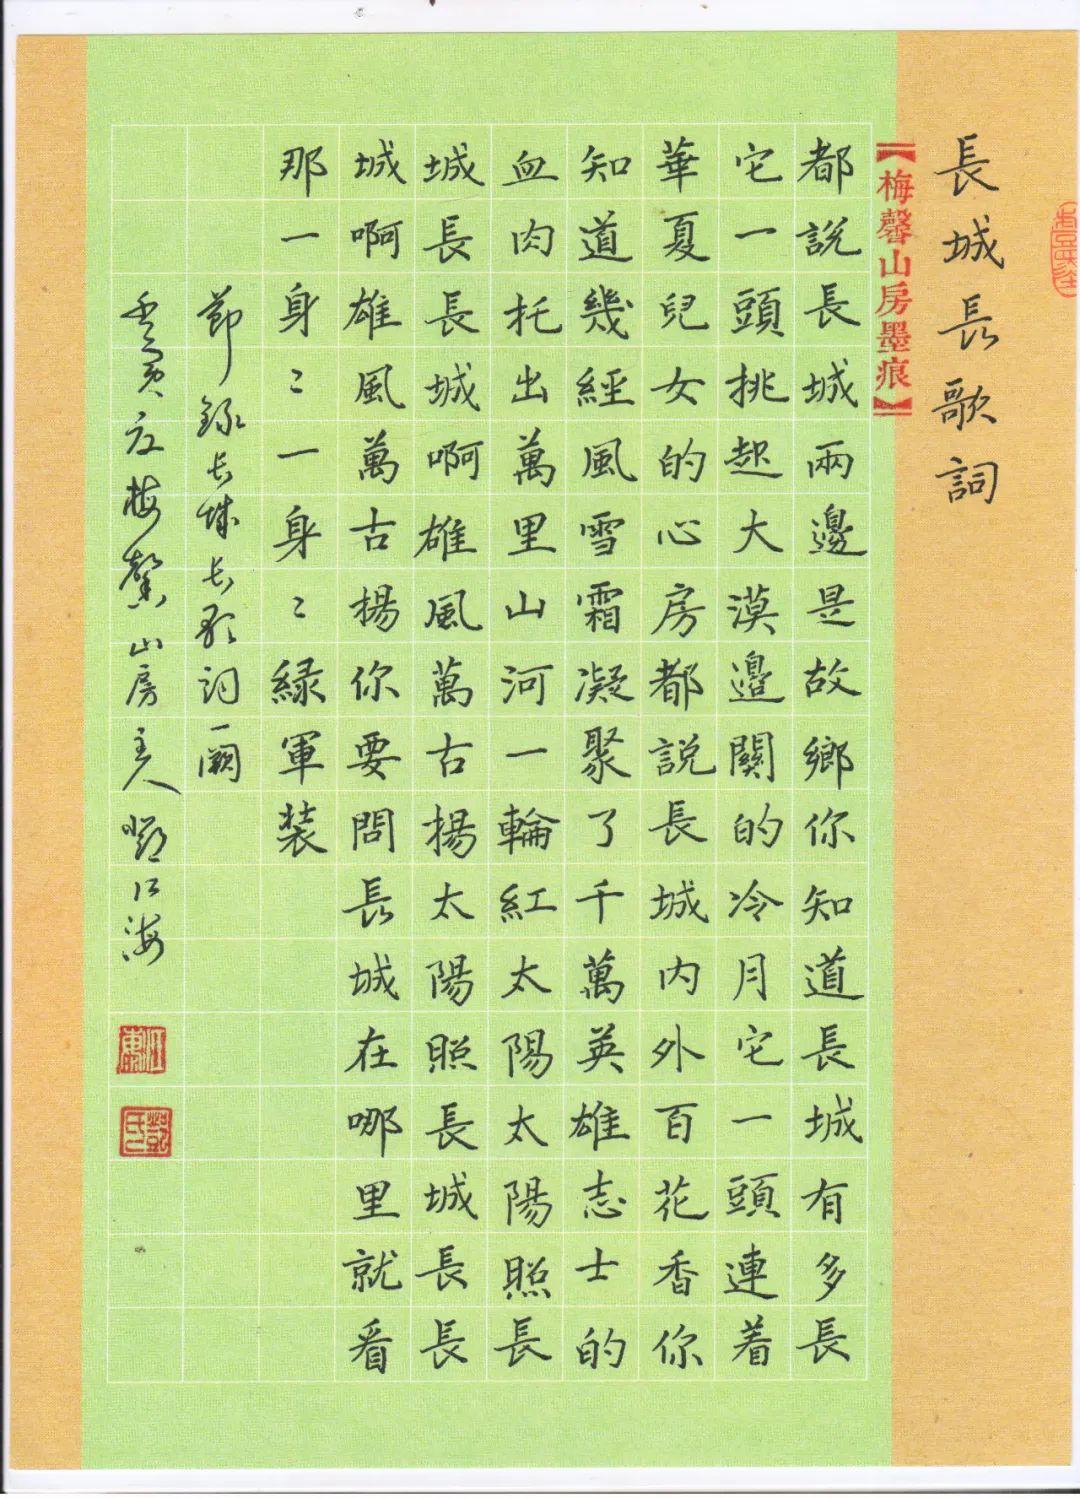 長城長歌詞
【梅馨山房墨痕】
都說長城兩邊是故鄉你知道長城有多長
它一頭挑起大漠邊關的冷月它一頭連着
華夏兒女的心房都說長城内外百花香你
知道幾經風雪霜凝聚了千萬英雄志士的
血肉托出萬里山河一輪紅太陽太陽照長
城長長城啊雄風萬古揚太陽照長城長長
城啊雄風萬古揚你要問長城在哪里就看
那一身〻一身〻綠軍裝
節錄长城长歌词一闕
壬寅梅馨山房主人鄧江海
鄧氏